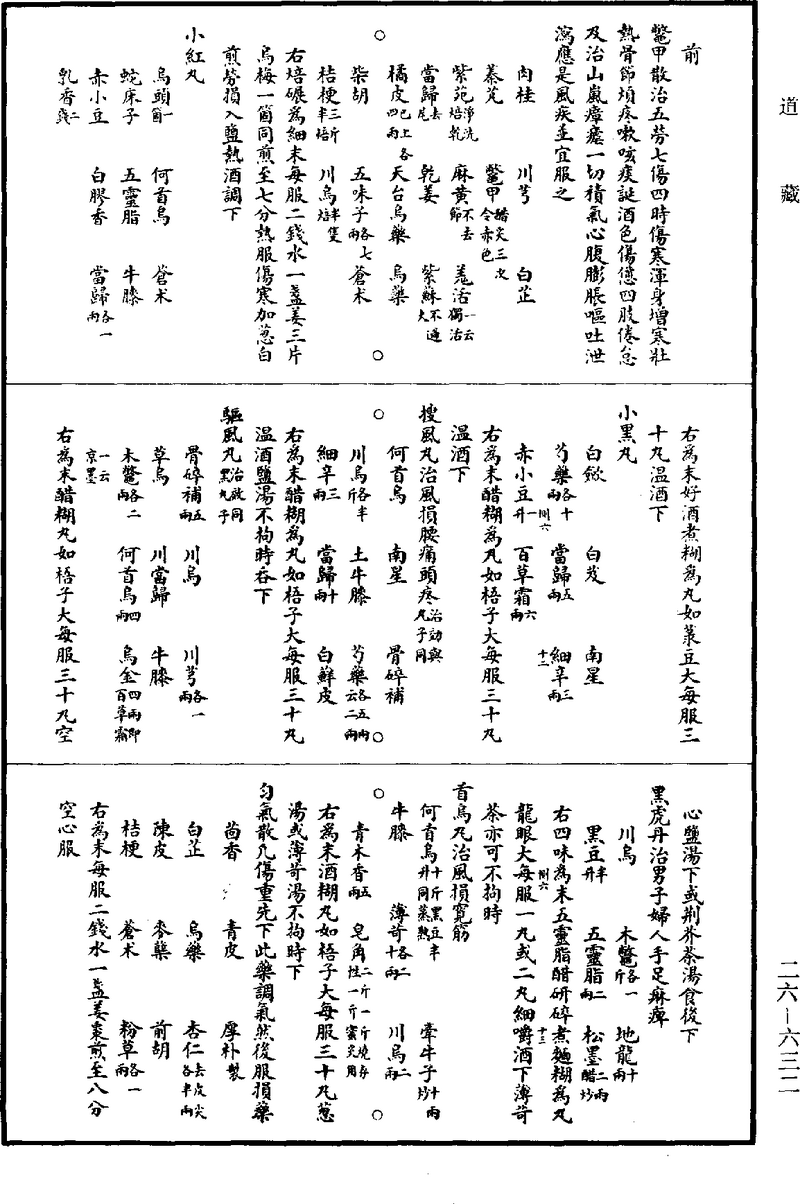 道藏
前
鼈甲散治五勞七傷四時傷寒渾身增寒壯
熱骨節煩疼嗽咳痰誕酒色傷憊四肢倦怠
及治山嵐瘴瘧一切積氣心腹膨脹嘔吐泄
瀉應是風疾並宜服之
肉桂 川芎 白芷
秦艽 鼈甲醋炙三次令赤色
紫苑淨洗焙乾 麻黃不去節 羗活一云獨活
當歸去尾 乾姜 紫蘇不過大
橘皮已上各四兩 天台烏藥 烏藥
柴胡 五味子各七兩 蒼术
桔梗三斤半焙 川烏半隻焙
右焙碾爲細末每服二錢水一盞姜三片
烏梅一箇同煎至七分熱服傷寒加葱白
煎勞損入鹽熱酒調下
小紅丸
烏頭一箇 何首烏 蒼术
蛇床子 五靈脂 牛膝
赤小豆 白膠香 當歸各一兩
乳香二錢
右爲末好酒煮糊爲丸如菉豆大每服三
十丸温酒下
小黑丸
白斂 白芨 南星
芍藥各十兩 當歸五兩 細辛三兩
赤小豆一升 百草霜六兩
右爲末醋糊爲丸如梧子大每服三十丸
温酒下
搜風丸治風損腰痛頭疼治効與丸子同
何首烏 南星 骨碎補
川烏各半斤 土牛膝 芍藥各五兩云二兩
細辛三兩 當歸十兩 白蘚皮
右爲末醋糊爲丸如梧子大每服三十丸
温酒鹽湯不拘時吞下
驅風丸治效同黑丸子
骨碎補五兩 川烏 川芎各一兩
草烏 川當歸 牛膝
木鼈各二兩 何首烏四兩 烏金四兩即百草霜
一云京墨
右爲末醋糊丸如梧子大每服三十丸空
卌六
十二
心鹽湯下或荆芥茶湯食後下
黑虎丹治男子婦人手足痳痺
川烏 木鼈各一斤 地龍十兩
黑豆半升 五靈脂二兩 松墨二兩醋炒
右四味爲末五靈脂醋研碎煮麵糊爲丸
龍眼大每服一丸或二丸細嚼酒下薄苛
茶亦可不拘時
首烏丸治風損寛筋
何首烏十斤黑豆半升同蒸熟 牽牛子十兩炒
牛膝 薄苛各二十兩 川烏二兩
青木香五兩 皂角二斤一斤燒存性一斤蜜炙用
右爲末酒糊丸如梧子大每服三十丸葱
湯或薄苛湯不拘時下
匀氣散凡傷重先下此藥調氣然後服損藥
茴香 青皮 厚朴製
白芷 烏藥 杏仁去皮尖各半兩
陳皮 麥糵 前胡
桔梗 蒼术 粉草各一兩
右爲末每服二錢水一盞姜棗煎至八分
空心服
卌六
十三
二六—六三二